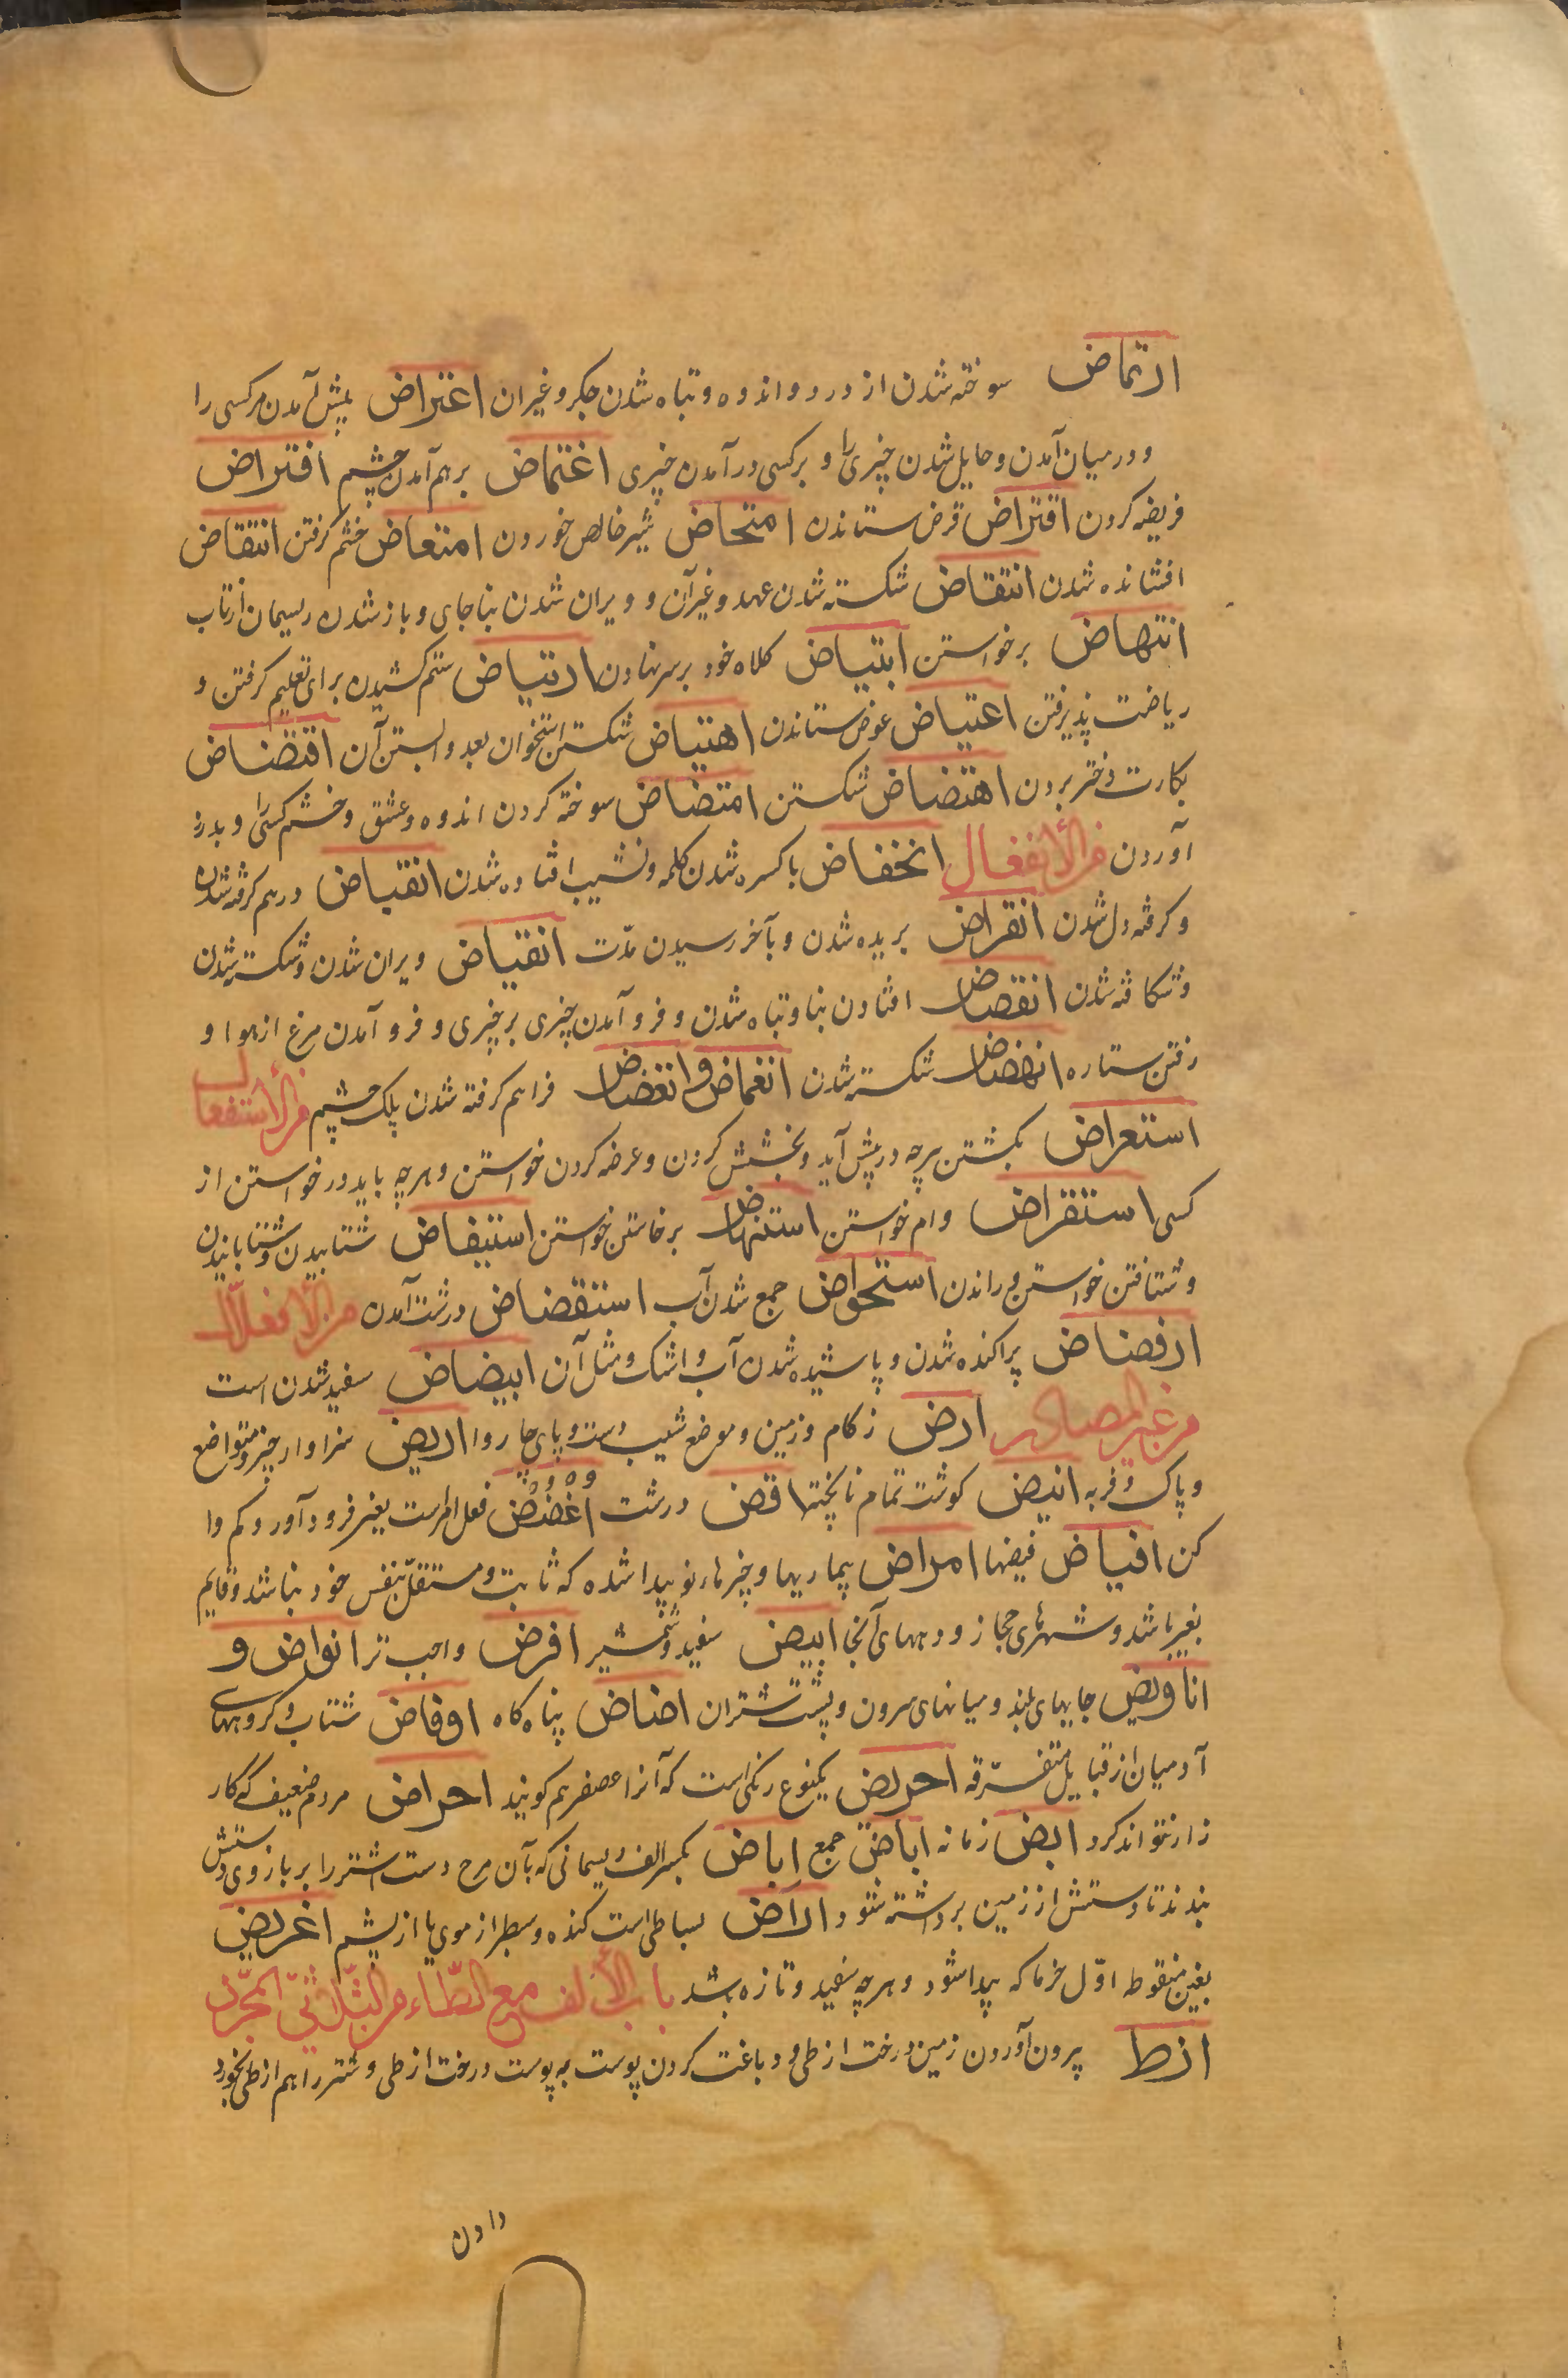 ارتماض سوخته شدن از درد و اندوه و تباه شدن جکر و غیر ان اعتراض پیش آمدن مر کسی را
و در میان آمدن و حایل شدن چیزی را و بر کسی در آمدن چیزی اغتماض بر هم آمدن چشم افتراض
فریضه کردن اقتراض قرض ستاندن امتحاض شیر خالص خوردن امتعاض خشم کرفتن انتفاض
افشانده شدن انتقاض شکسته شدن عهد و غیر آن و ویران شدن بنا جای و باز شدن ریسمان از تاب
انتهاض برخواستن ابتیاض کلاه خود بر سر نهادن ارتیاض ستم کشیدن برای تعلیم کرفتن و
ریاضت پذیرفتن اعتیاض عوض ستاندن اهتیاض شکستن استخوان بعد و ابستن آن اقتضاض
بکارت دختر بردن اهتضاض شکستن امتضاض سوخته کردن اندوه و عشق و خشم کسی را و بدرد
آوردن من الأنفعال انخفاض با کسره شدن کلمه و نشیب افتاده شدن انقباض در هم کرفته شدن
و کرفته دل شدن انقراض بریده شدن و بآخر رسیدن مدّت انقیاض ویران شدن و شکسته شدن
و شکافته شدن انقضاض افتادن بنا و تباه شدن و فرو آمدن چیزی بر چیزی و فرو آمدن مرغ از هوا و
رفتن ستاره انهضاض شکسته شدن انغماض و انغضاض فراهم کرفته شدن پلک چشم من الأستفعال
استعراض بکشتن هرچه در پیش آید و بخشش کردن و عرضه کردن خواستن و هرچه باید در خواستن از
کسی استقراض وام خواستن استنهاض برخاستن خواستن استیفاض شتابیدن و شتابانیدن
و شتافتن خواستن و راندن استحواض جمع شدن آب استقضاض درشت آمدن من الأفعلال
ارفضاض پراکنده شدن و پاشیده شدن آب و اشک و مثل آن ابیضاض سفید شدن است
من غیر المصادر ارض زکام و زمین و موضع شیب دست و پای چاروا اریض سزاوار چیز و متواضع
و پاک و فربه انیض کوشت تمام نا پخته اقض درشت اُغضُض فعل امر است یعنی فرود آور و کم وا
کن افیاض فیضها امراض بیماریها و چیزها نو پیدا شده که ثابت و مستقلّ بنفس خود نباشد و قایم
بغیر باشد و شهرهای حجاز و دههای آنجا ابیض سفید و شمشیر افرض واجب تر انواض و
اناویض جایهای بلند و میانهای سرون و پشت شتران اضاض پناه کاه اوفاض شتاب و کروههای
آدمیان از قبایل متفرّقه احریض یکنوع رنکی است که آنرا عصفر هم کویند احراض مردم ضعیف که کار
زار نتواند کرد ابض زمانه اباض جمع اِباض بکسر الف ریسمانی که بآن مرح دست اشتر را بر بازوی دستش
بندند تا دستش از زمین برداشته شود اراض بساطی است کنده و سطبر از موی یا از پشم اغریض
بغین منقوط اوّل خرما که پیدا شود و هرچه سفید و تازه باشد باب الألف مع الطّاء من الثّلاثیّ المجرّد
ارط بیرون آوردن زمین درخت ارطی و دباغت کردن پوست به پوست درخت ارطی و شتر را هم ارطی بخورد
دادن